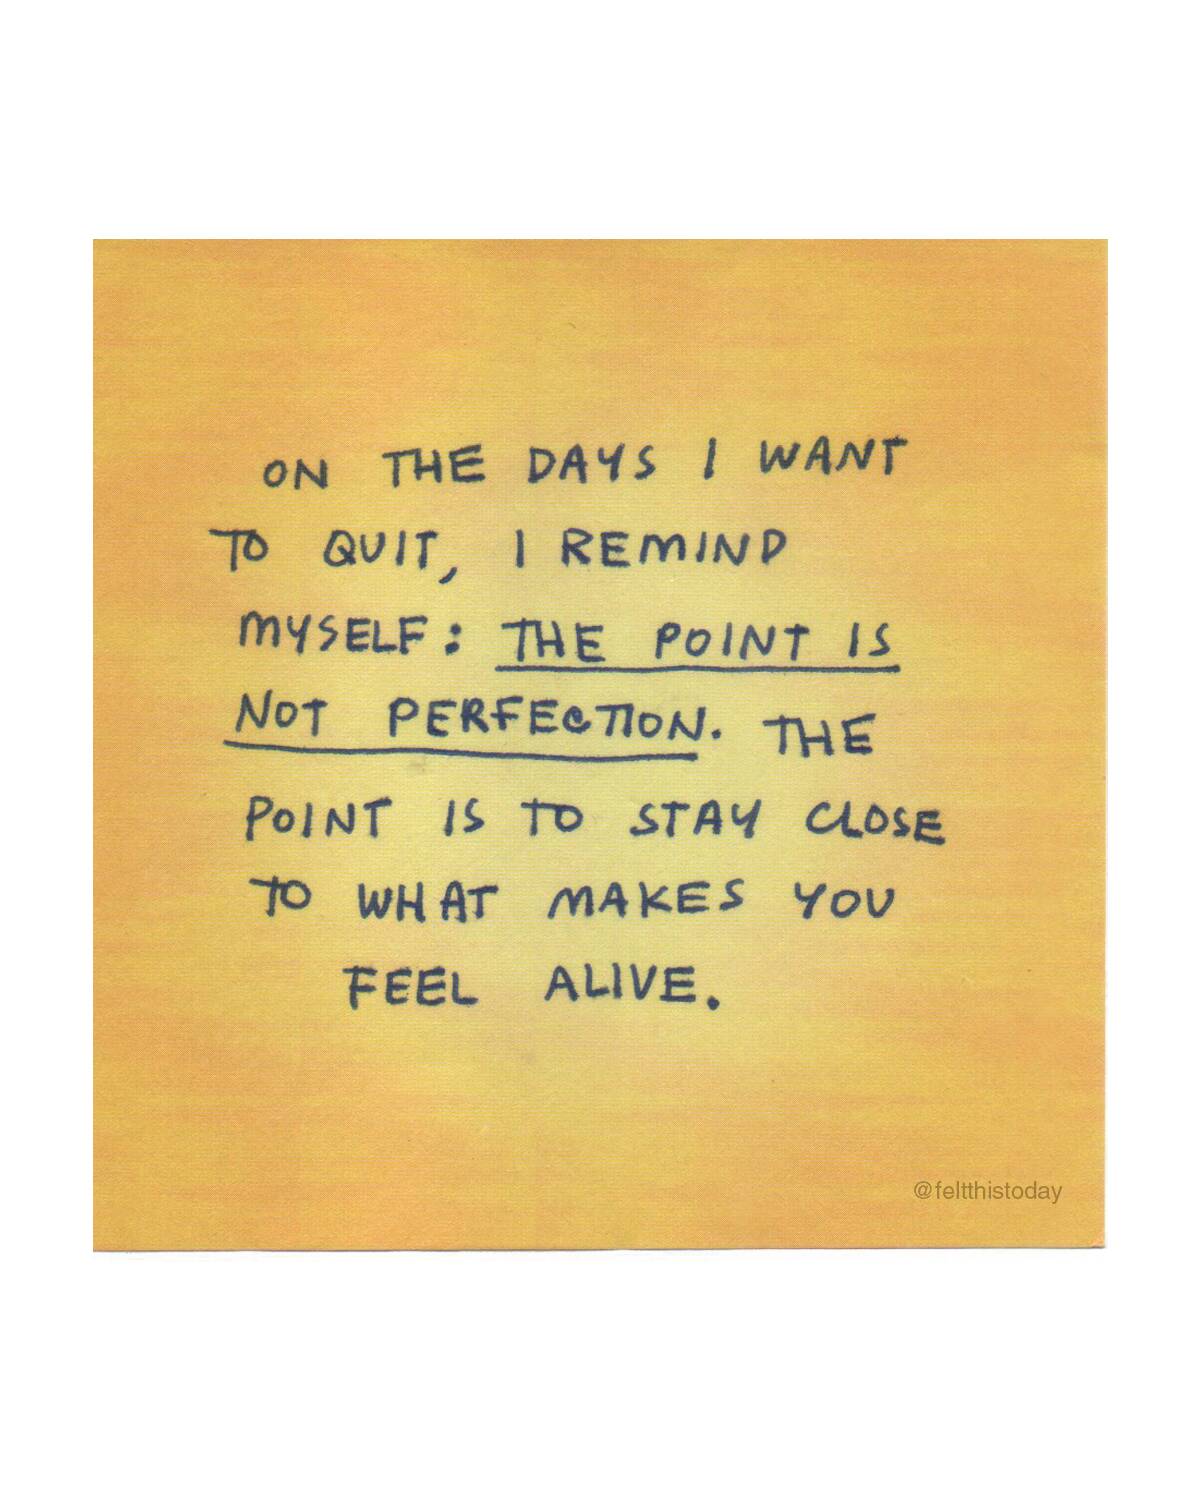 ON THE DAYS I WANT
TO QUIT, I REMIND
MYSELF: THE POINT IS
NOT PERFECTION. THE
POINT IS TO STAY CLOSE
TO WHAT MAKES YOU
FEEL ALIVE.
@feltthistoday